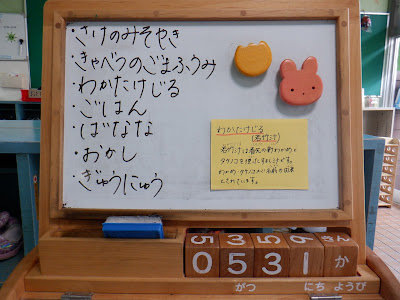 ・さけのみそやき
・きゃべつのごまふうみ
・わかたけじる
・ごはん
・ばなな
・おかし
・ぎゅうにゅう
わかたけじる
(若竹汁)
若竹汁は春先の新わかめと
タケノコを使ったすまし汁です。
わかめ、タケノコから名前の由来
0531か
がつ
にち ようび